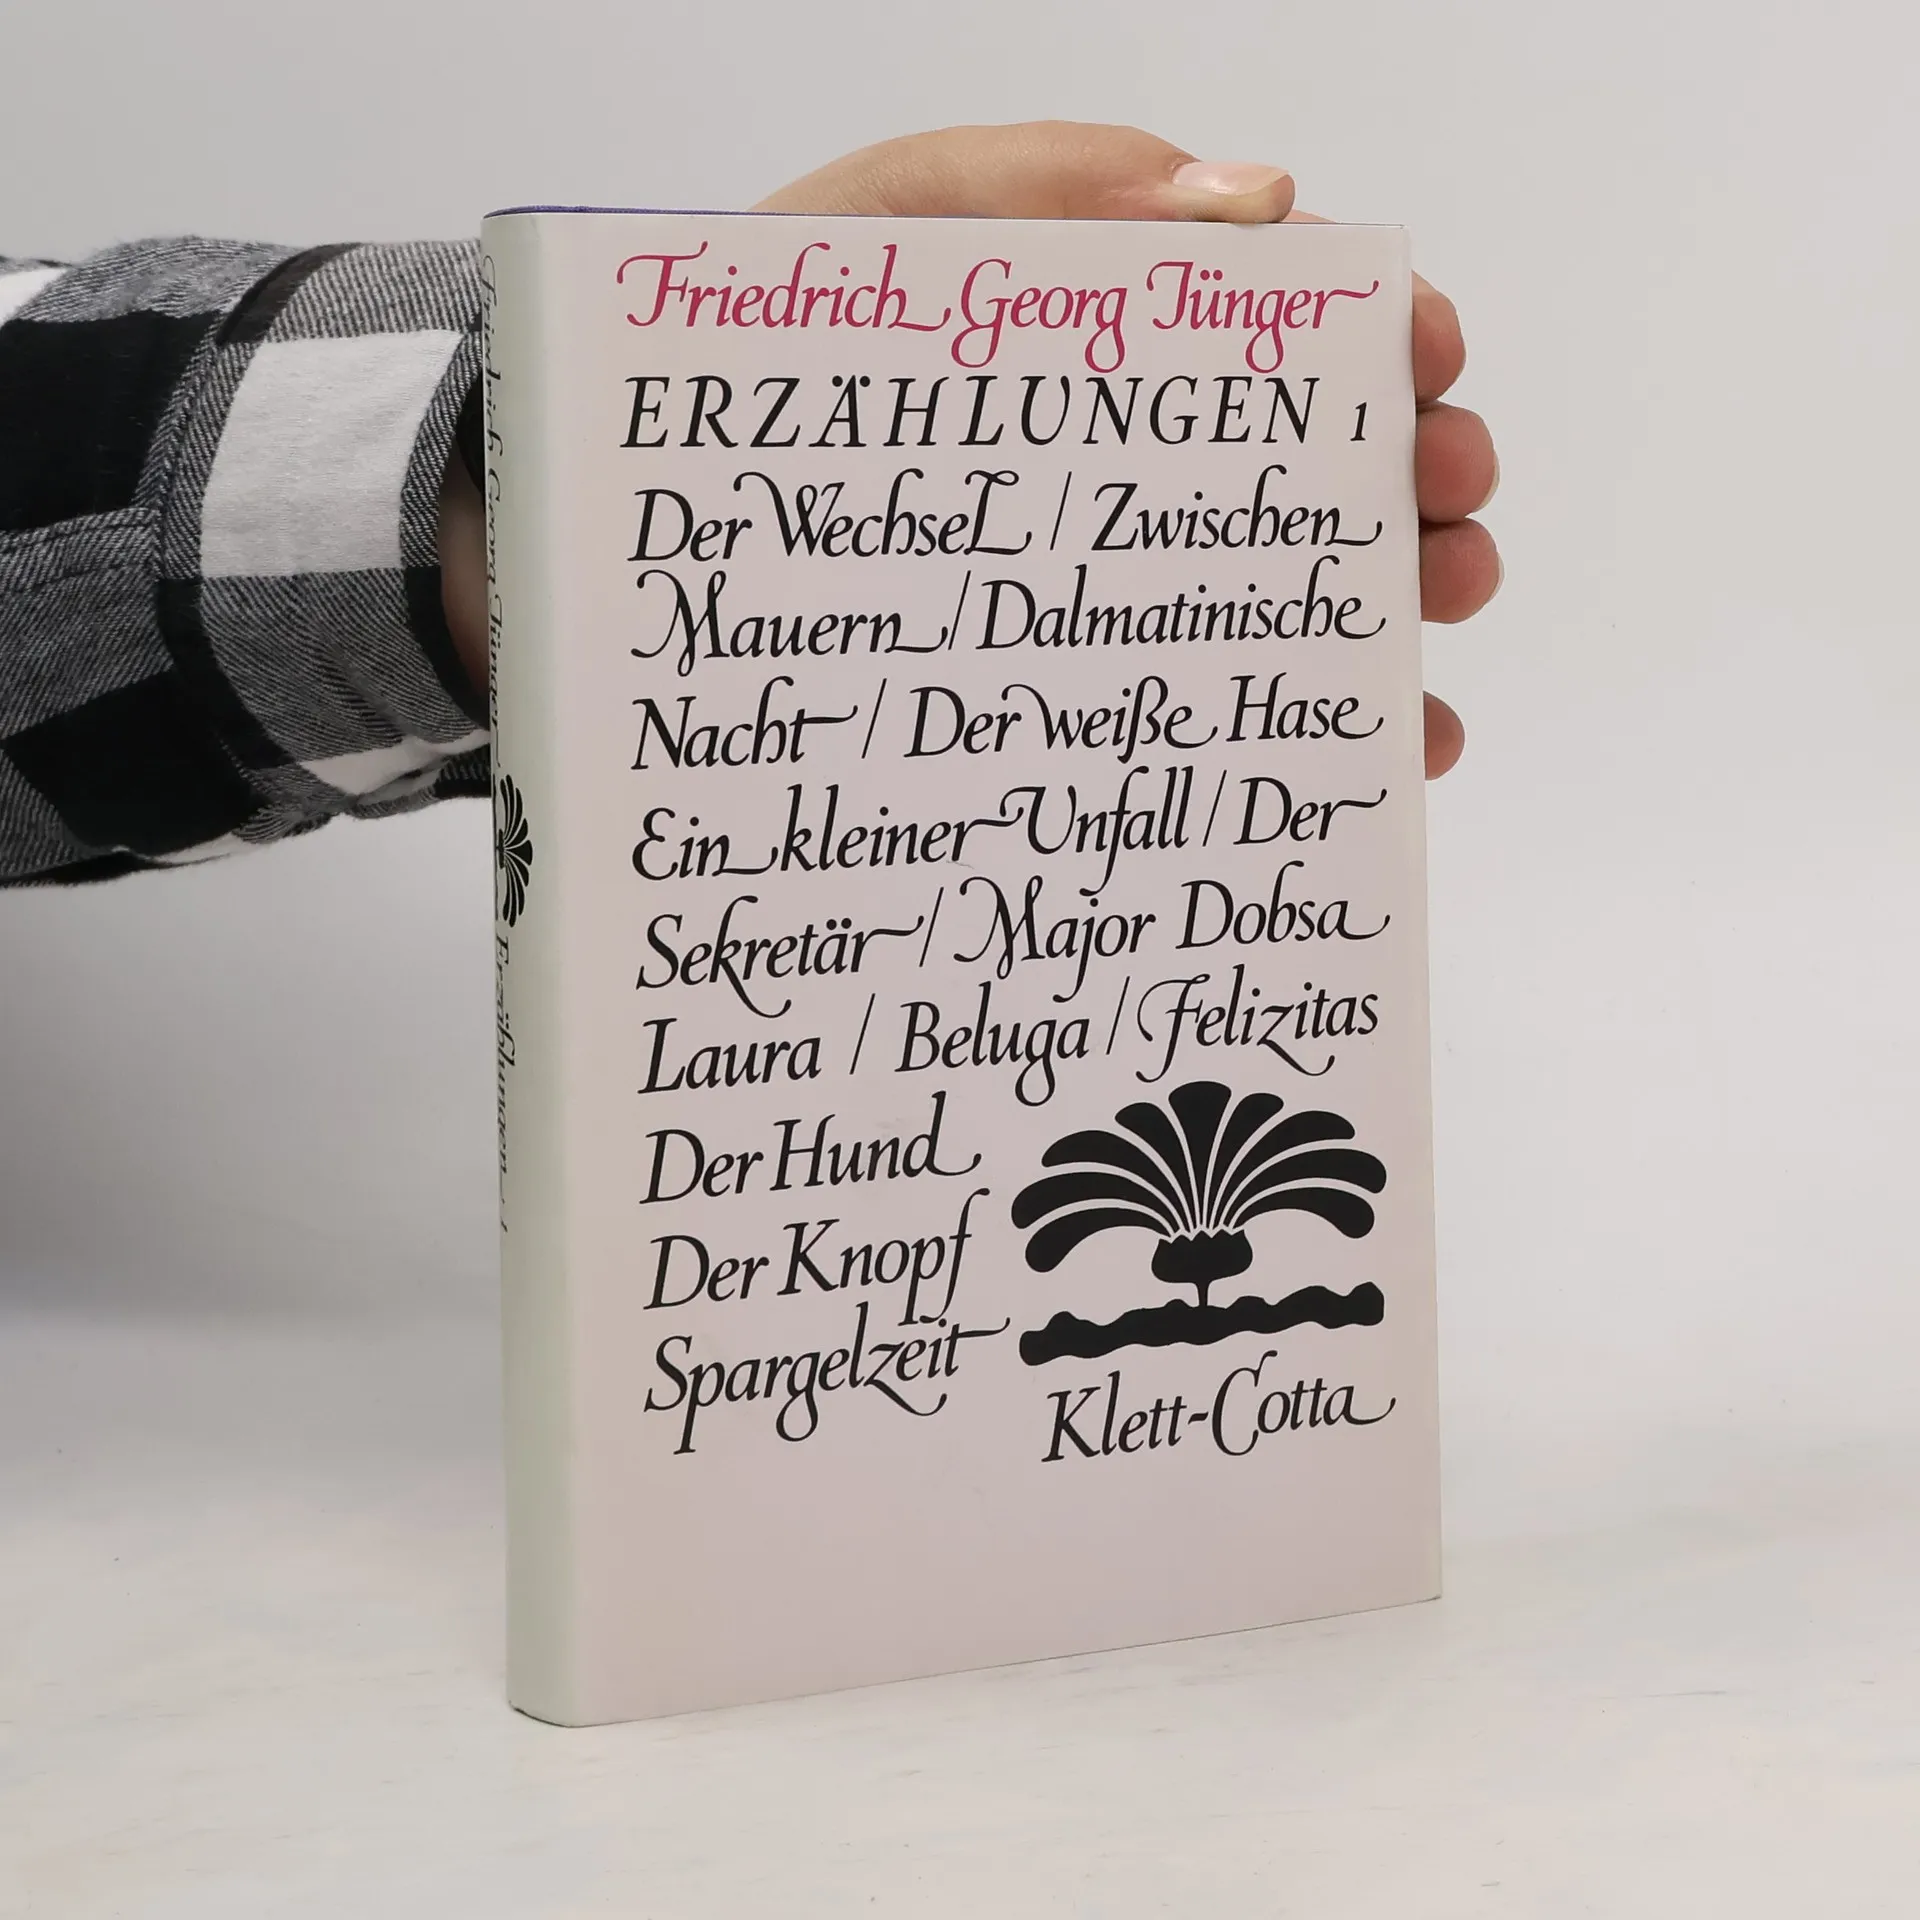 Friedrich Georg Jünger
ERZÄHLUNGEN 1
Der Wechsel / Zwischen
Mauern / Dalmatinische
Nacht / Der weiße Hase
Ein kleiner Unfall / Der
Sekretär / Major Dobsa
Laura / Beluga / Felizitas
Der Hund
Der Knopf
Spargelzeit
Klett-Cotta
Friedrich Georg Jünger Erzählungen 1